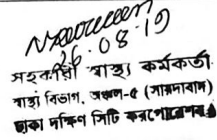 26.08.19
সহকারী স্বাস্থ্য কর্মকর্তা
স্বাস্থ্য বিভাগ, অঞ্চল-৫ (সায়দাবাদ)
ঢাকা দক্ষিণ সিটি কর্পোরেশন